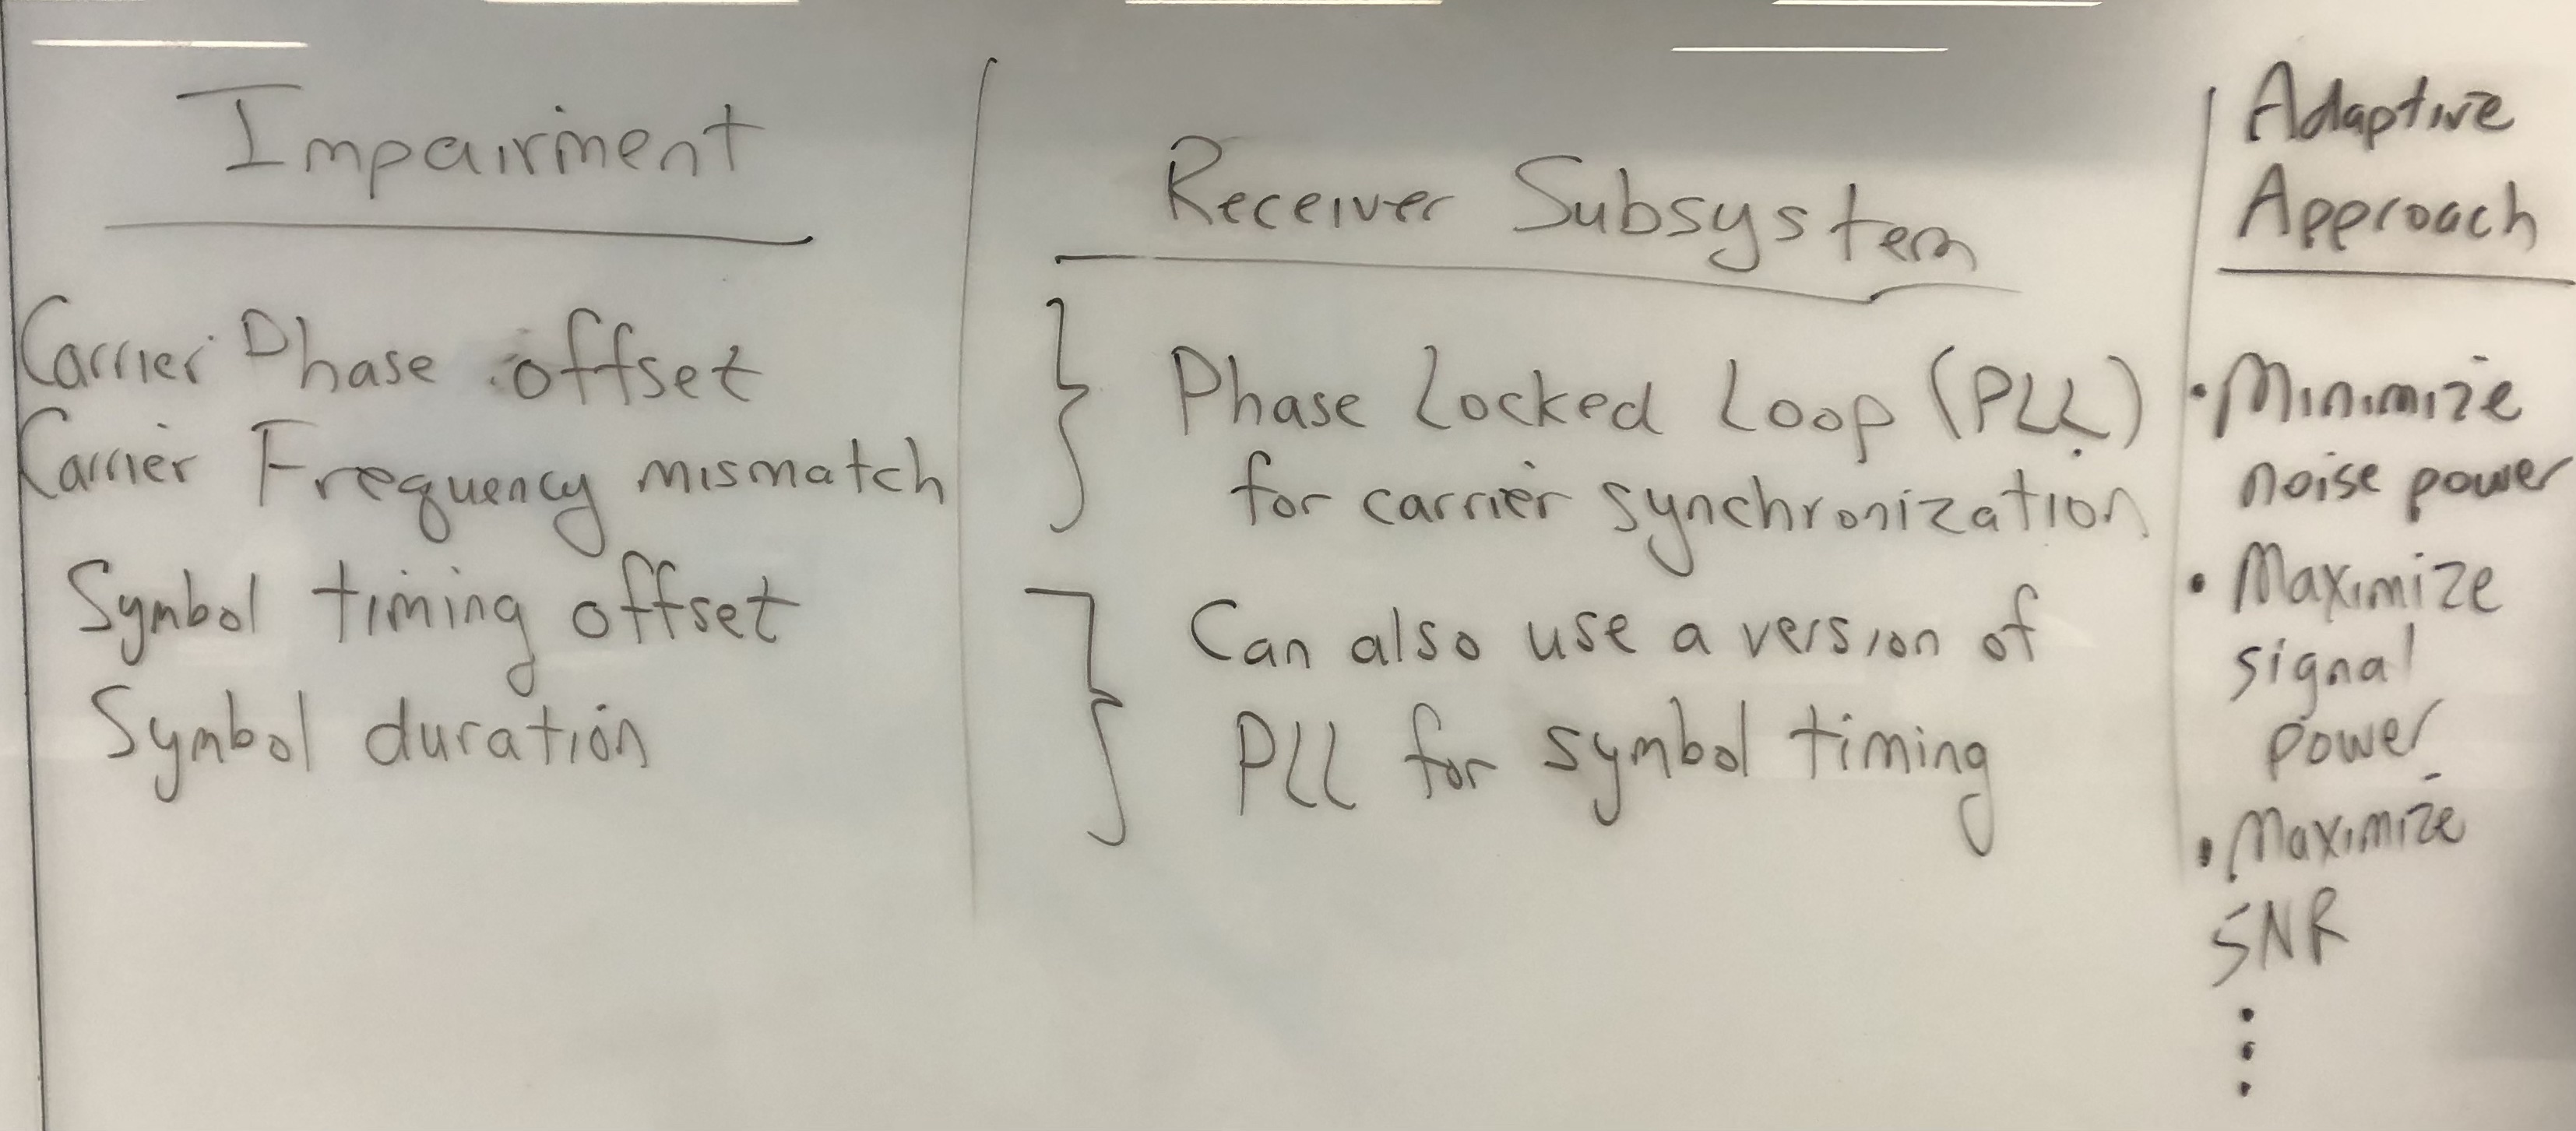 Impairment
Carrier Phase offset
Carrier Frequency mismatch
Symbol timing offset
Symbol duration
Receiver Subsystem
Phase Locked Loop (PLL)
for carrier synchronization
Can also use a version of
PLL for symbol timing
Adaptive
Approach
• Minimize
noise power
• Maximize
signal
power
• Maximize
SNR
⋮